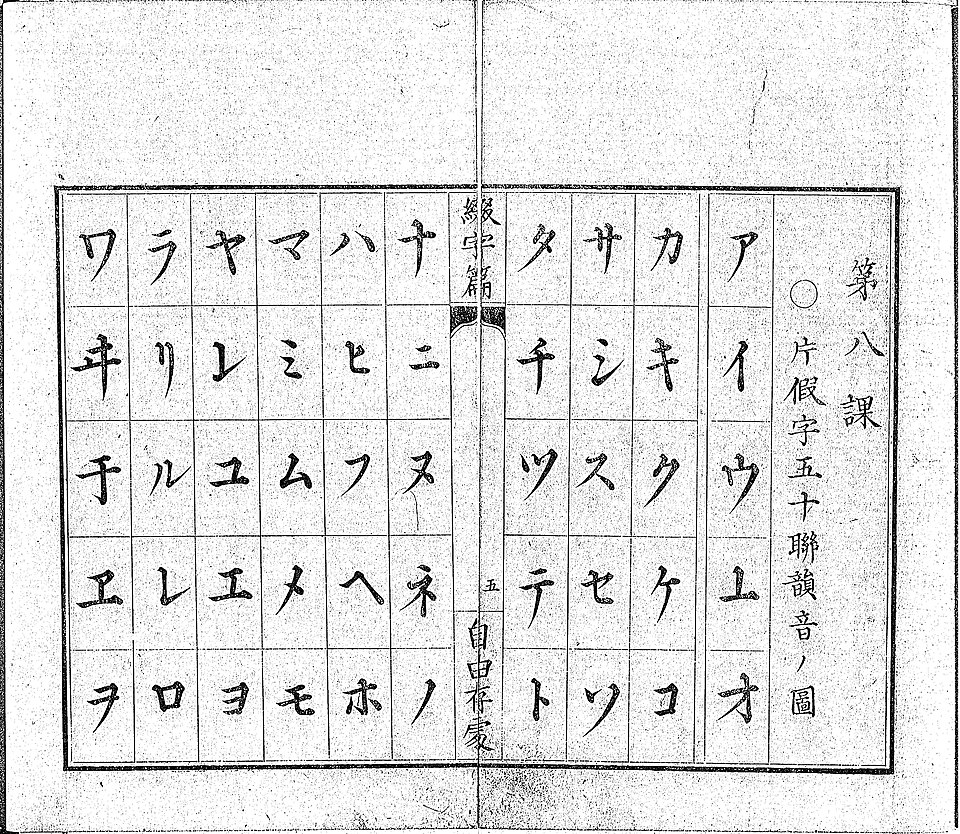 第八課
○片假字五十聯韻音ノ圖
アイウ丄オ
カキクケコ
サシスセソ
タチツテト
綴字篇 五 自由存處
ナニヌネノ
ハヒフヘホ
マミムメモ
ヤ𛄠ユエヨ
ラリルレロ
ワヰ于ヱヲ